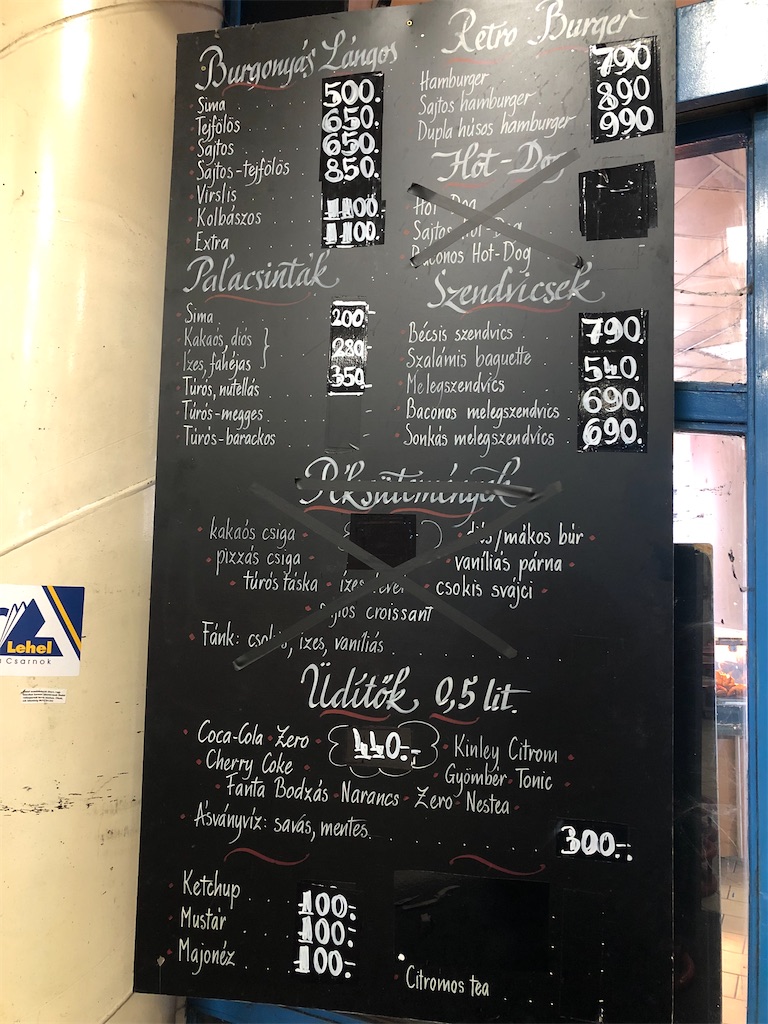 Burgonyás Lángos
Sima 500.
Tejfölös 650.
Sajtos 650.
Sajtos-tejfölös 850.
Virslis
Kolbászos 1100.
Extra 1100.
Palacsinták
Sima 200.-
Kakaós, diós }
Ízes, fahéjas 280-
Túrós, nutellás 350.-
Túrós-megges
Túrós-barackos
Retro Burger
Hamburger 790
Sajtos hamburger 890
Dupla húsos hamburger 990
Hot-Dog
Hot Dog
Sajtos Hot-Dog
Baconos Hot-Dog
Szendvicsek
Bécsis szendvics 790.
Szalámis baguette 540.
Melegszendvics
Baconos melegszendvics 690.
Sonkás melegszendvics 690.
Péksütemények
kakaós csiga diós/mákos búr
pizzás csiga vaníliás párna
túrós táska ízes levél csokis svájci
sajtos croissant
Fánk: csokis, ízes, vaníliás
Üdítők 0,5 lit.
Coca-Cola Zero 440.- Kinley Citrom
Cherry Coke Gyömbér Tonic
Fanta Bodzás Narancs Zero Nestea
Ásványvíz: savás, mentes. 300.-
Ketchup 100.-
Mustár 100.-
Majonéz 100.-
Citromos tea
Lehel
Csarnok